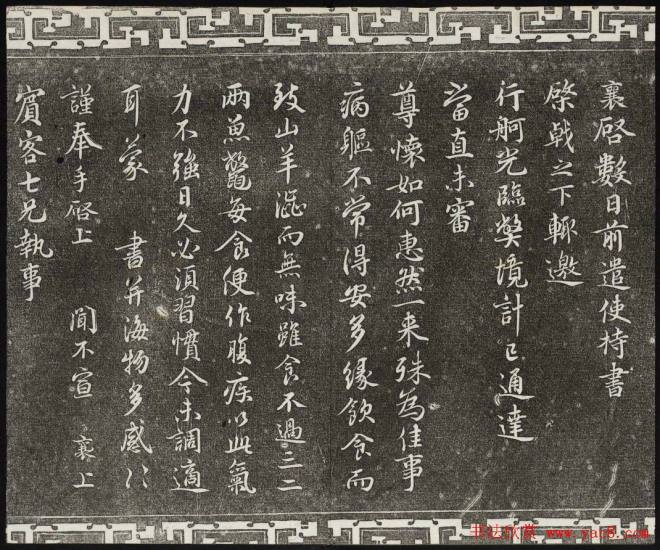 襄啓數日前遣使持書
棨戟之下輒邀
行舸光臨弊境計已通達
當直未審
尊懷如何惠然一來殊為佳事
病軀不常得安多緣飲食而
致山羊澀而無味雖食不過三二
兩魚鼈每食便作腹疾以此氣
力不強日久必須習慣今未調適
耳蒙 書并海物多感〻
謹奉手啓上 閒不宣 襄上
賓客七兄執事
书法欣赏 www.yac8.com